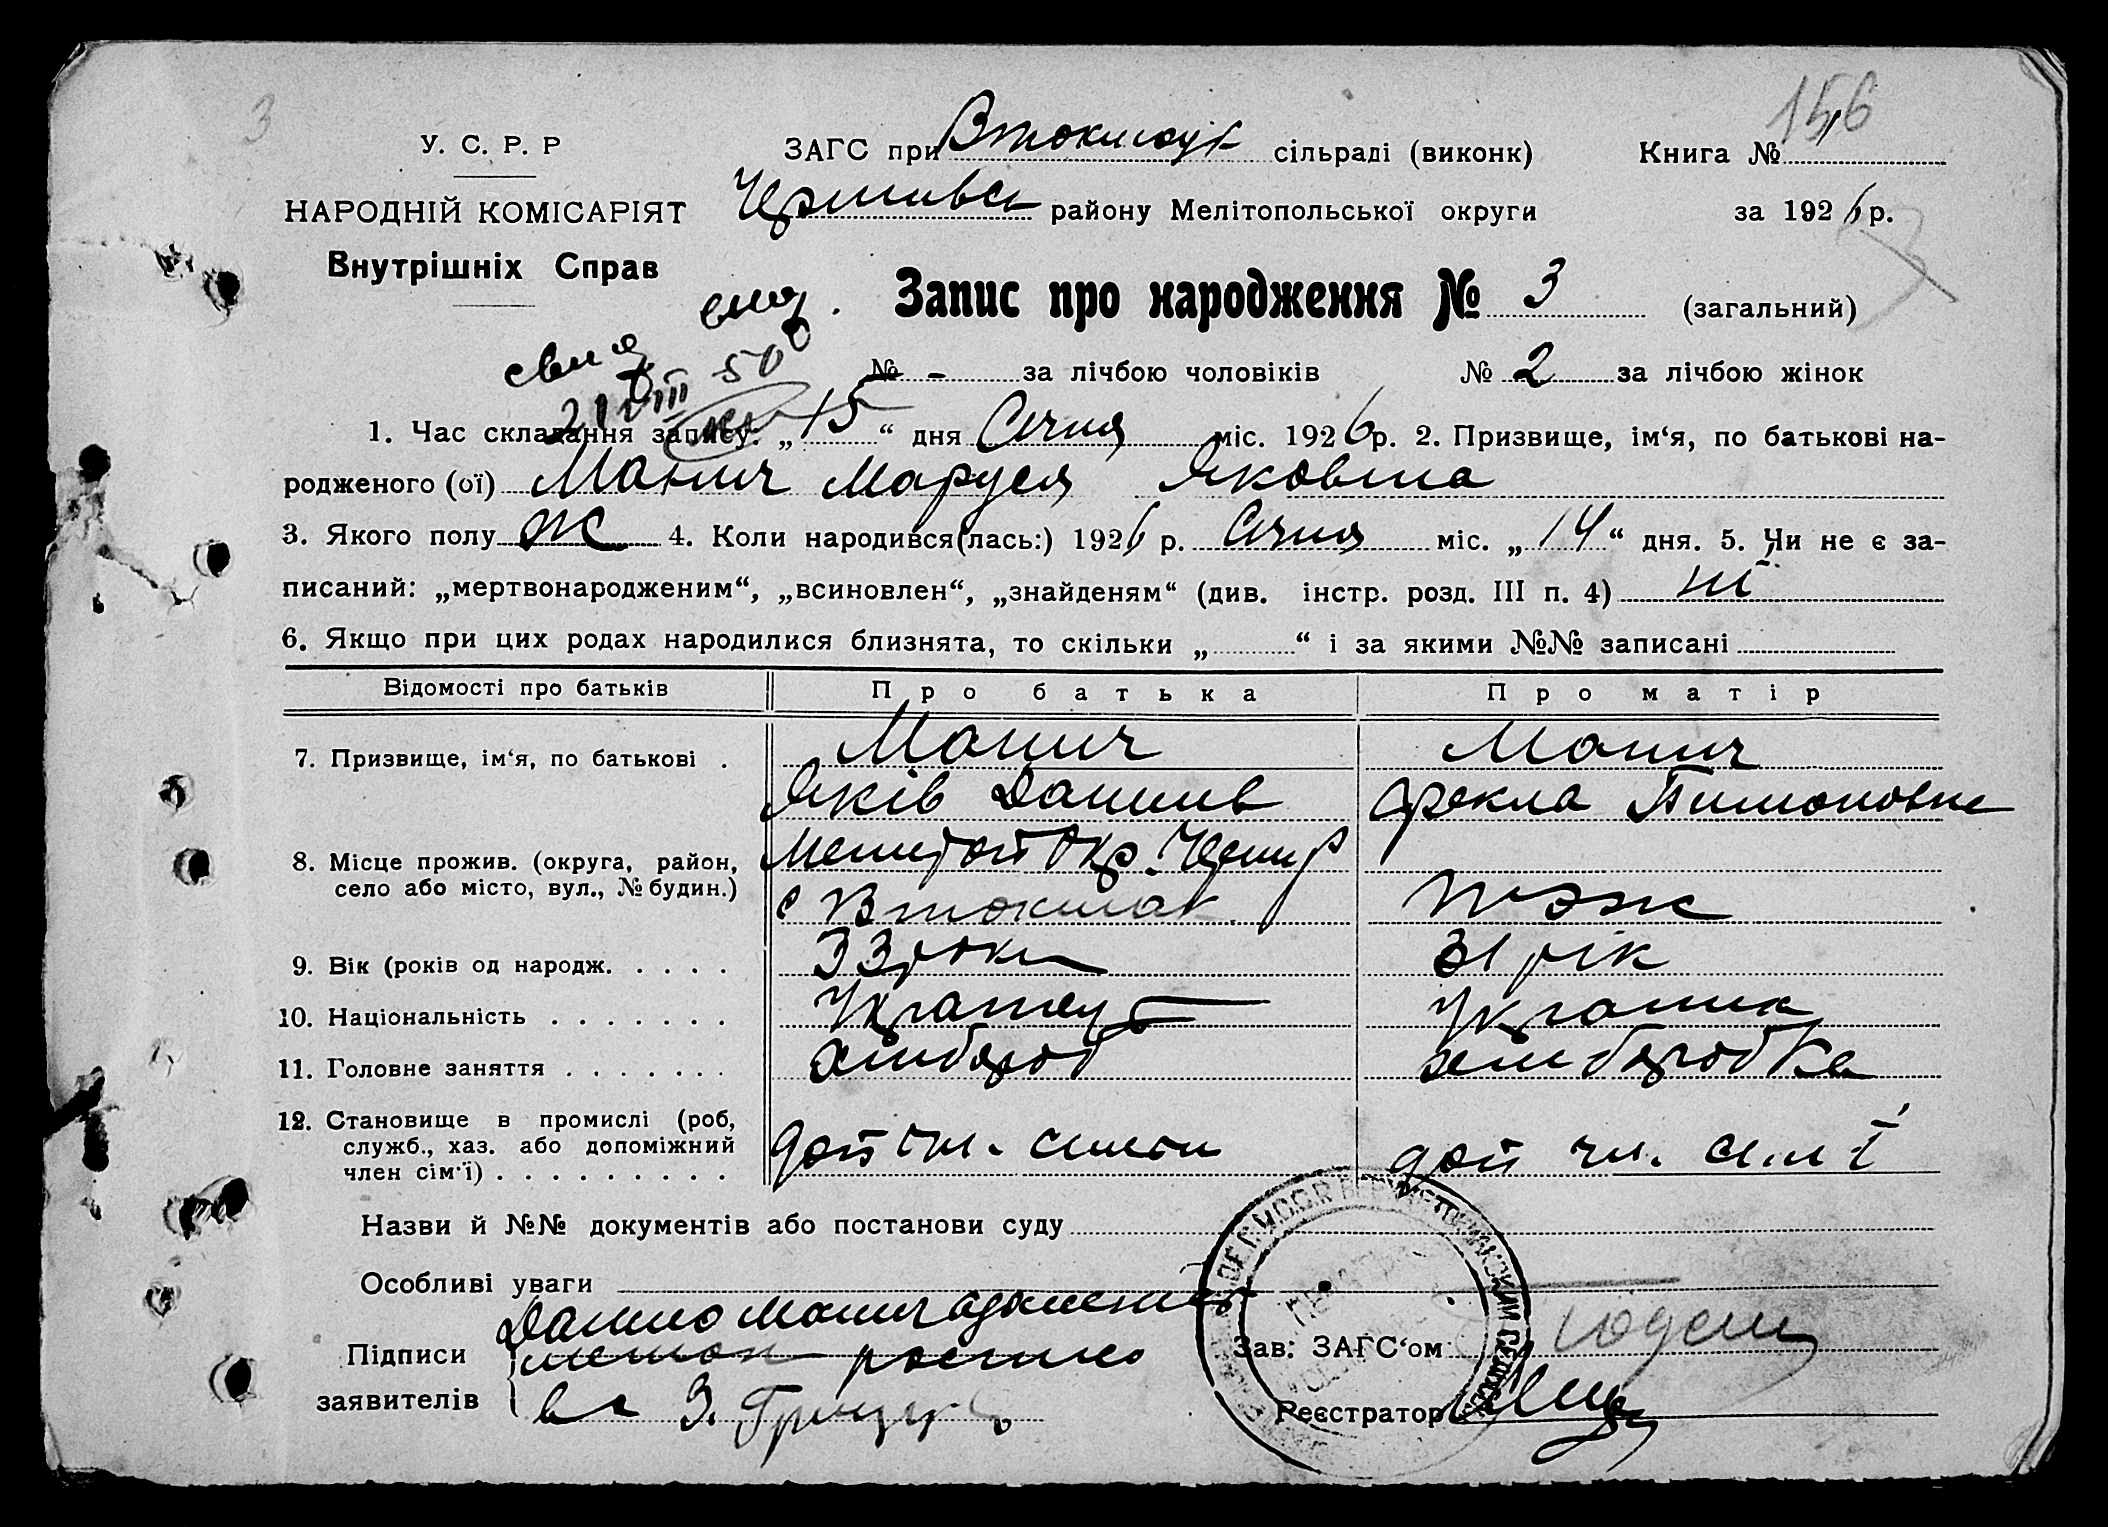 3
156
У. С. Р. Р
ЗАГС при Втокмацк сільраді (виконк) Книга №
НАРОДНІЙ КОМІСАРІЯТ
Чернивск району Мелітопольської округи за 1926 р.
Внутрішніх Справ
Запис про народження № 3 (загальний)
№ - за лічбою чоловіків № 2 за лічбою жінок
21 VIII 50
1. Час складання запису. „15“ дня Січня міс. 1926 р. 2. Призвище, ім‘я, по батькові на-
родженого (ої) Манич Маруся Яковівна
3. Якого полу Ж 4. Коли народився(лась:) 1926 р. Січня міс. „14“ дня. 5. Чи не є за-
писаний: „мертвонародженим“, „всиновлен“, „знайденям“ (див. інстр. розд. III п. 4) ні
6. Якщо при цих родах народилися близнята, то скільки „ “ і за якими №№ записані
Відомості про батьків Про батька Про матір
7. Призвище, ім‘я, по батькові . Манич Манич
Яків Данилів Фекла Тимоновна
8. Місце прожив. (округа, район, Мелитоп Окр.
село або місто, вул., № будин.) с Втокмак тоже
9. Вік (років од народж. . . . . 33 роки 31 рік
10. Національність . . . . . . . Украінец Украинка
11. Головне заняття . . . . . . . хлибороб хлиборобка
12. Становище в промислі (роб,
служб., хаз. або допоміжний доп чл. симьи доп чл. сім ї
член сім‘ї) . . . . . . . . .
Назви й №№ документів або постанови суду
Особливі уваги
Данило Манич
Підписи
заявителів
Зав: ЗАГС‘ом
Реєстратор